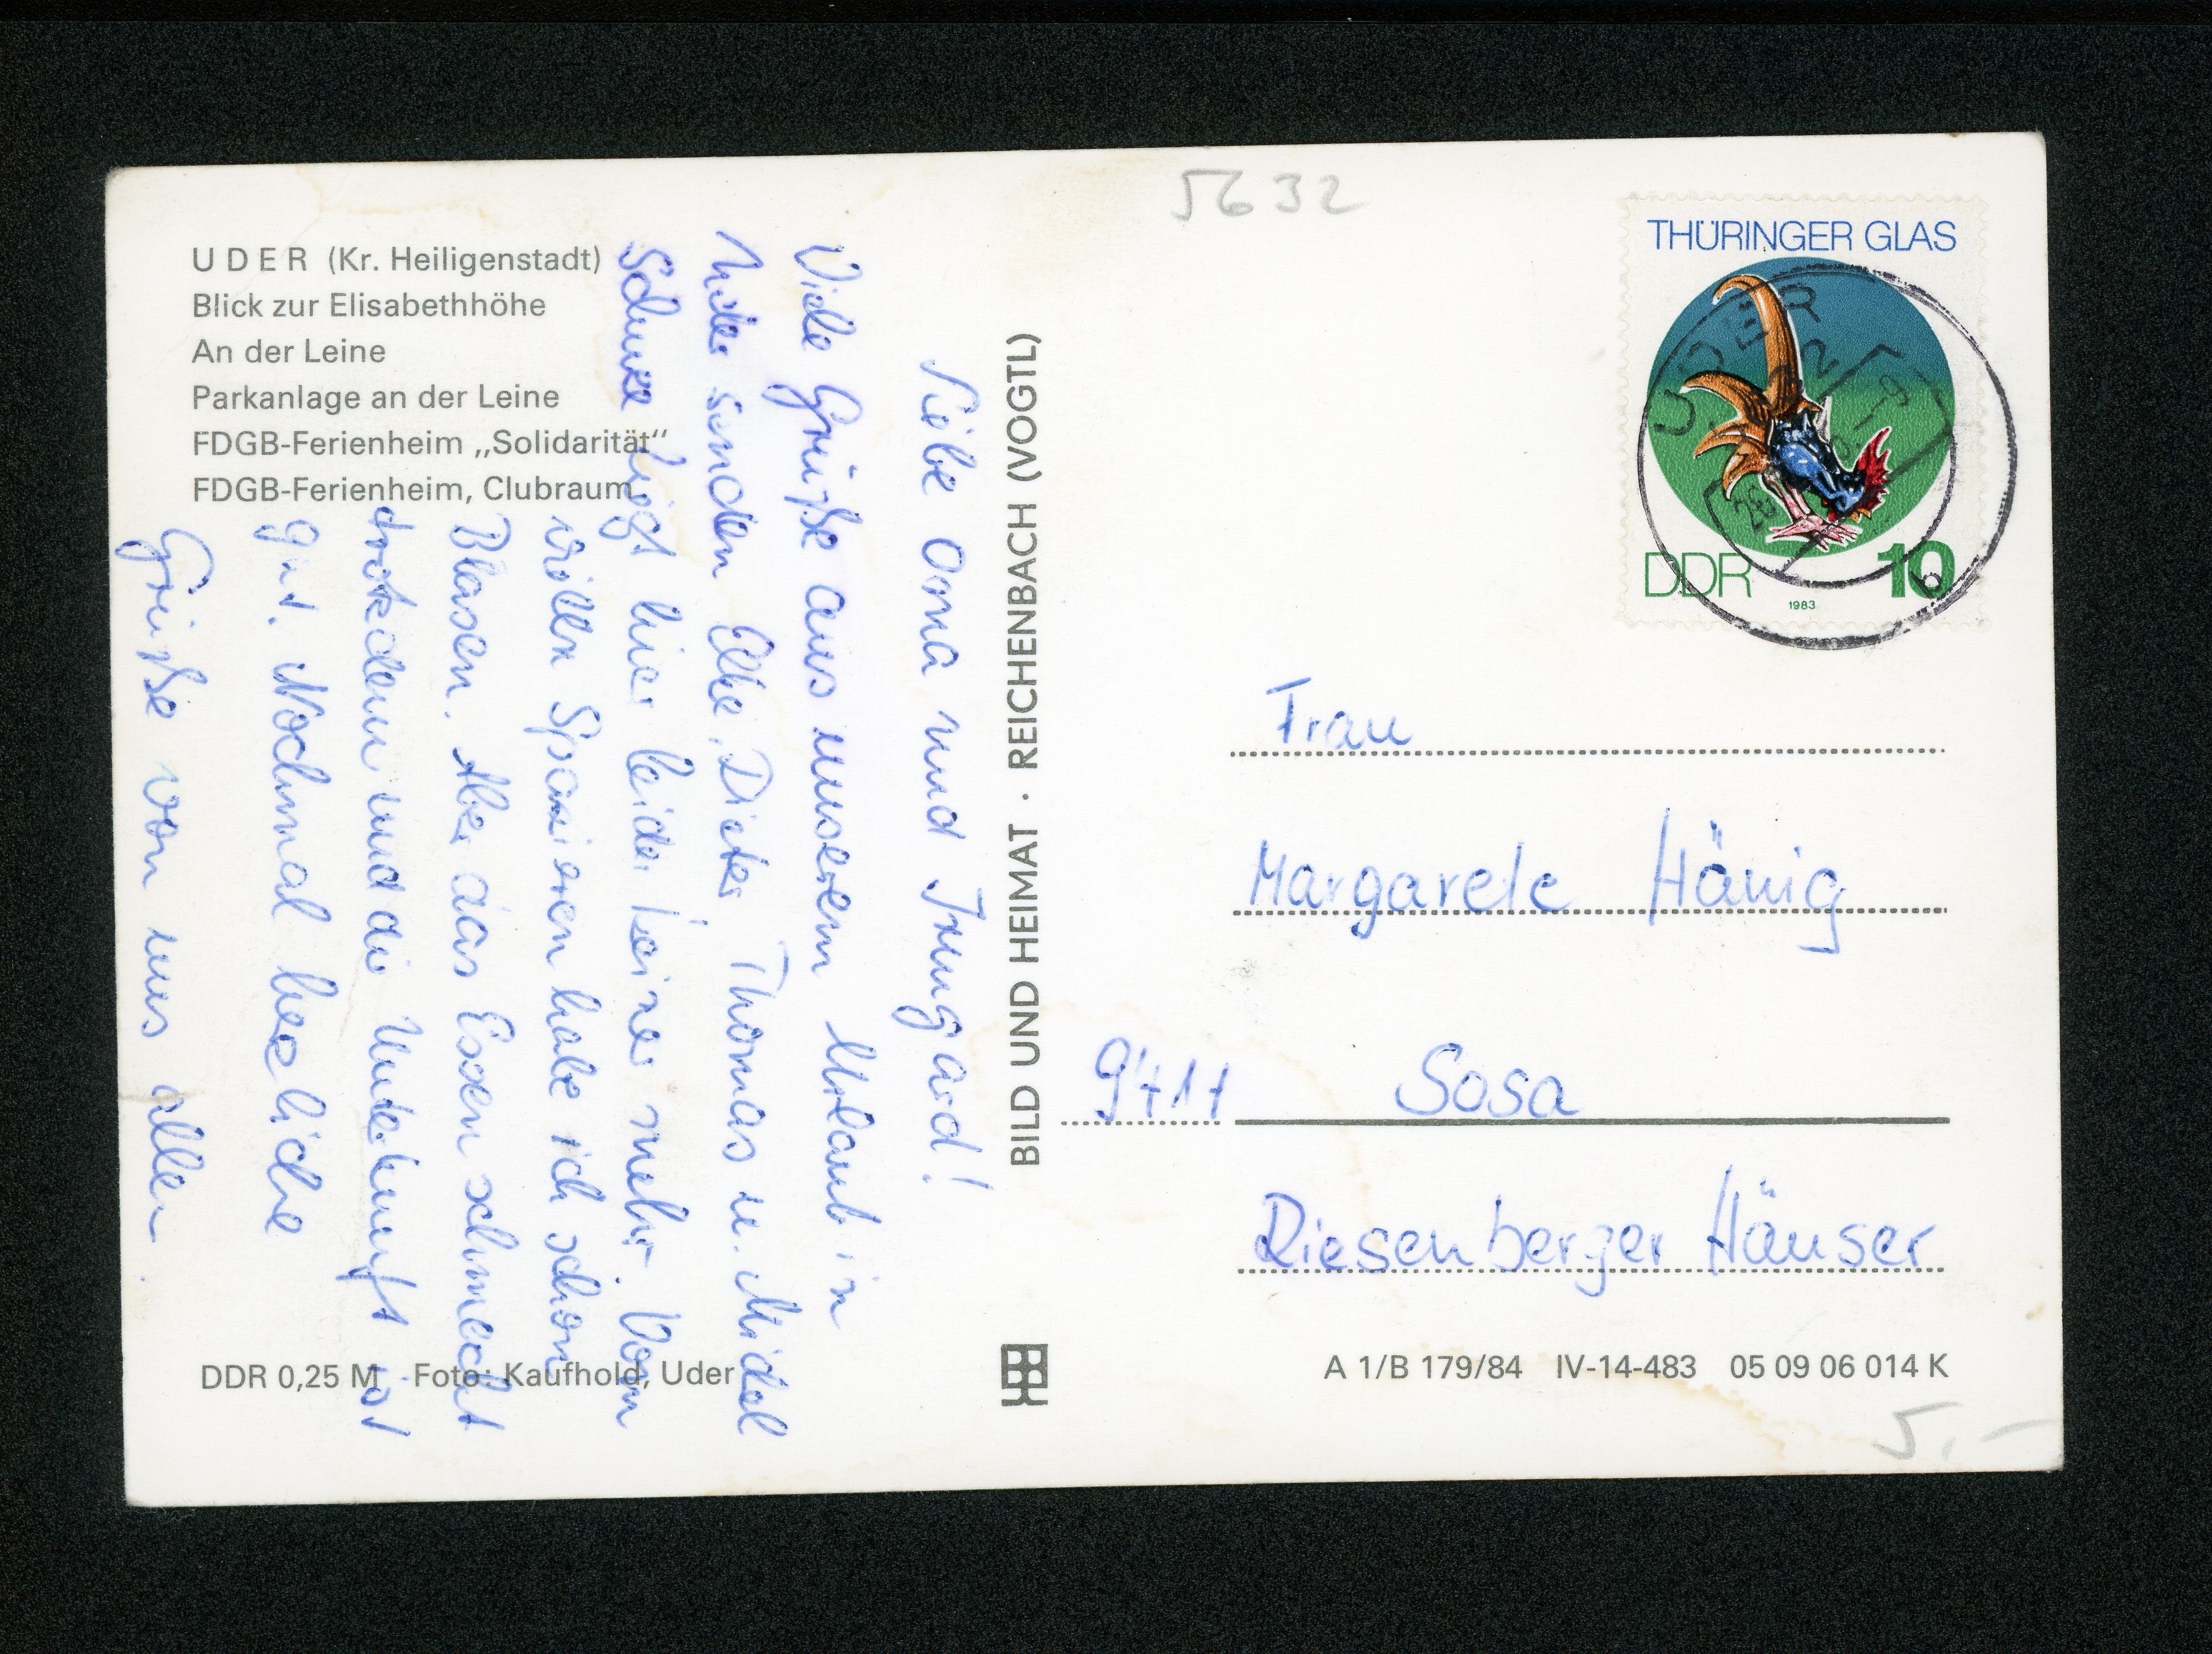 U D E R (Kr. Heiligenstadt)
Blick zur Elisabethhöhe
An der Leine
Parkanlage an der Leine
FDGB-Ferienheim „Solidarität“
FDGB-Ferienheim, Clubraum
Liebe Oma und Irmgard!
Viele Grüße aus unserem Urlaub in
Uder senden Elke, Dieter Thomas u. Maidel
Schnee liegt hier leider keiner mehr. Vom
vielen Spazieren habe ich schon
Blasen. Aber das Essen schmeckt
trotzdem und die Unterkunft ist
gut. Nochmal herzliche
Grüße von uns allen.
DDR 0,25 M Foto: Kaufhold, Uder
BILD UND HEIMAT · REICHENBACH (VOGTL)
5632
THÜRINGER GLAS
UDER
DDR 10
1983
b
Frau
Margarete Hänig
9411 Sosa
Riesenberger Häuser
A 1/B 179/84 IV-14-483 05 09 06 014 K
5.-